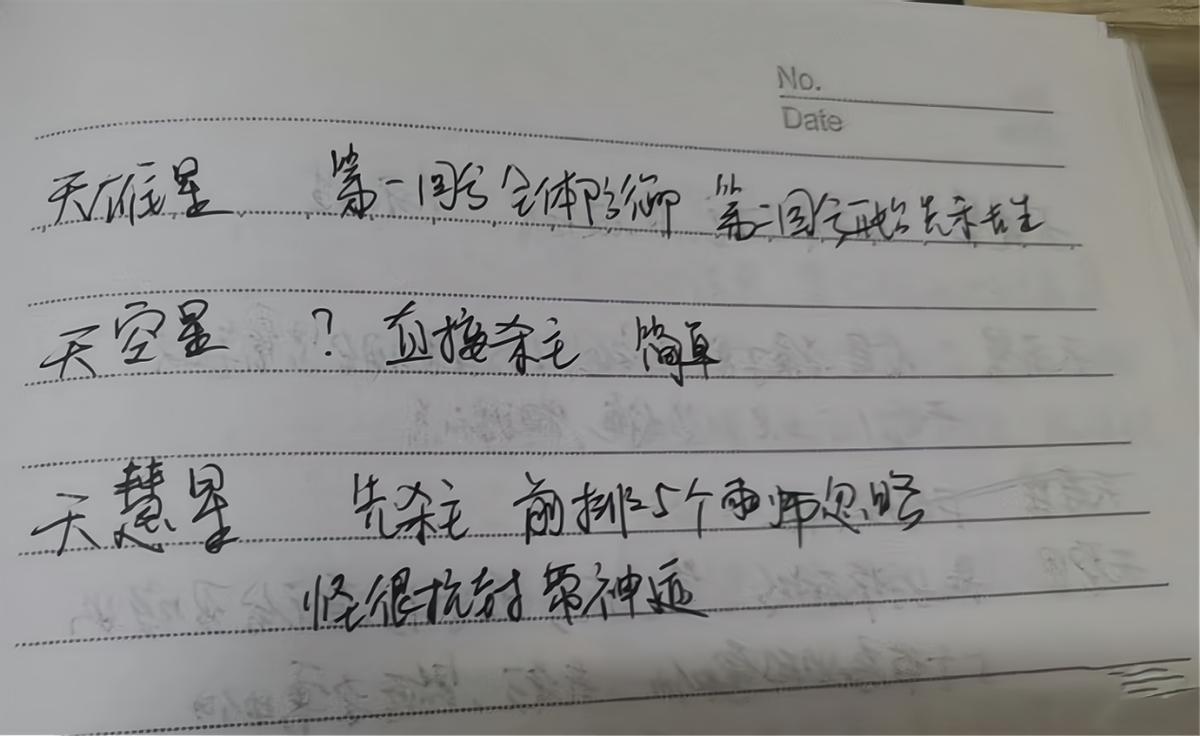 No.
Date
天雄星 第一回合全体防御 第二回合开始先杀古圣
天空星 ? 直接杀主 简单
天慧星 先杀主 前排5个雨师忽略
怪很抗封 带神迹